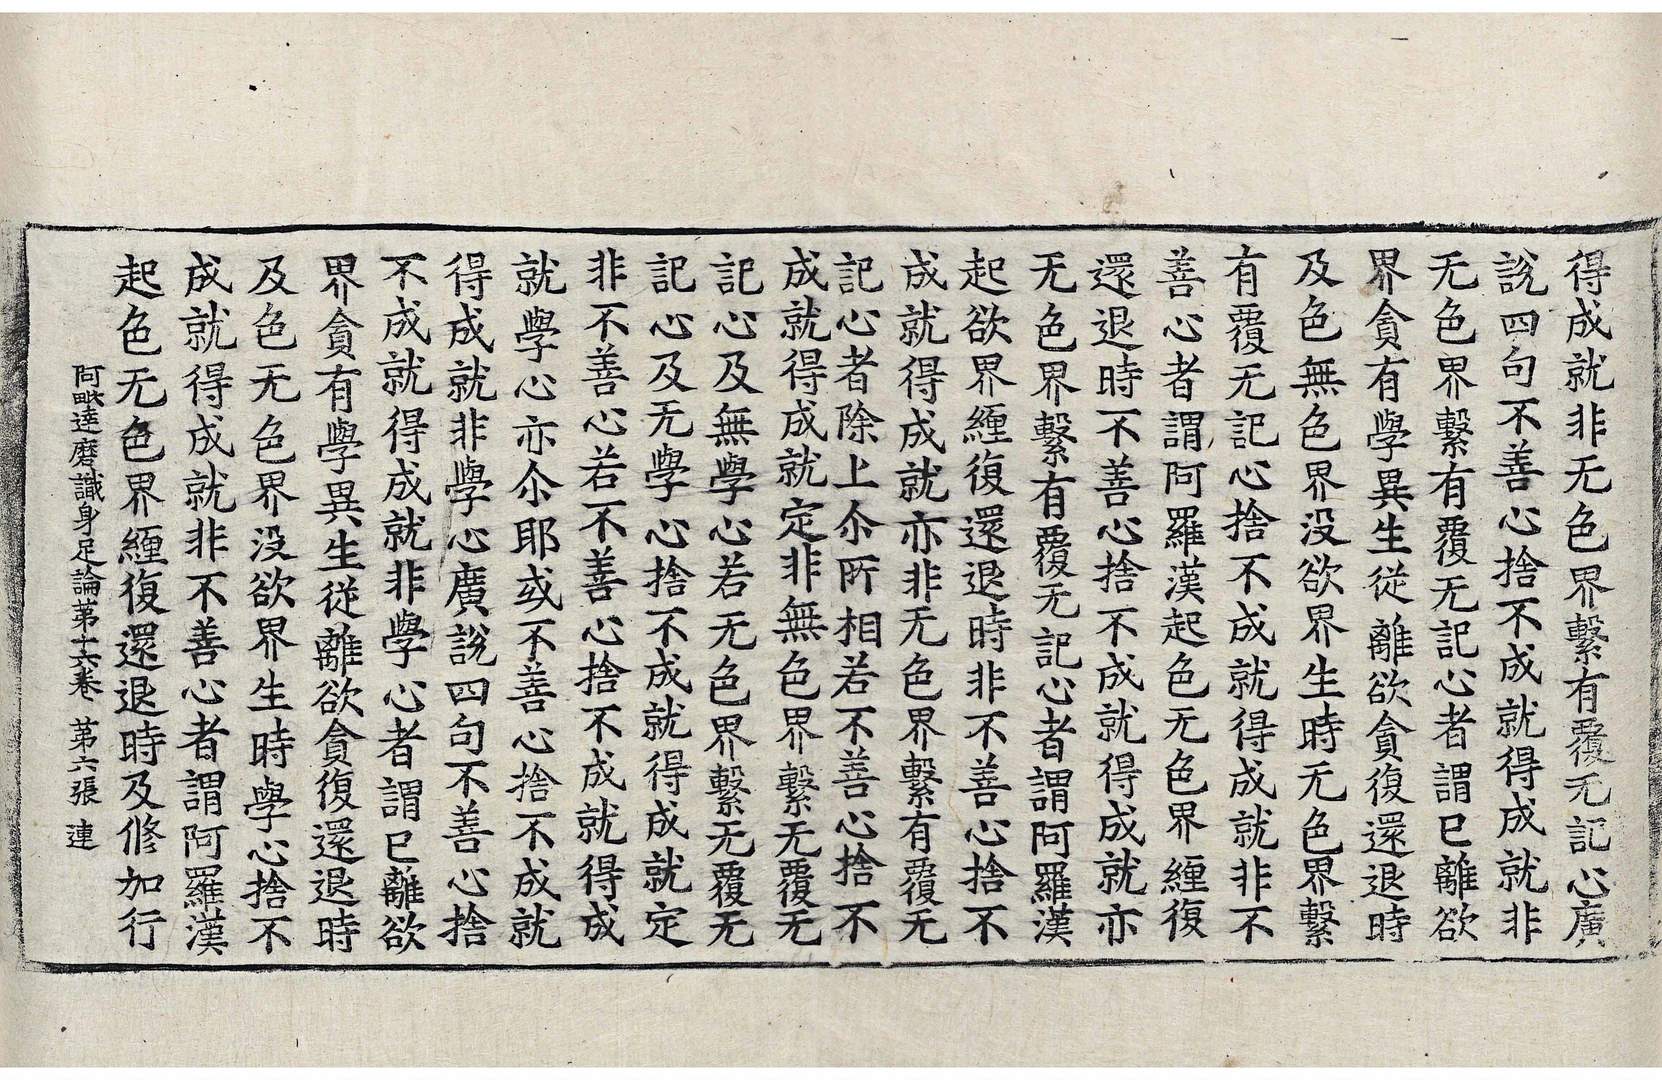 得成就非无色界繫有覆无記心廣
說四句不善心捨不成就得成就非
无色界繫有覆无記心者謂已離欲
界貪有學異生從離欲貪復還退時
及色無色界没欲界生時无色界繫
有覆无記心捨不成就得成就非不
善心者謂阿羅漢起色无色界纏復
還退時不善心捨不成就得成就亦
无色界繫有覆无記心者謂阿羅漢
起欲界纏復還退時非不善心捨不
成就得成就亦非无色界繫有覆无
記心者除上尒所相若不善心捨不
成就得成就定非無色界繫无覆无
記心及無學心若无色界繫无覆无
記心及无學心捨不成就得成就定
非不善心若不善心捨不成就得成
就學心亦尒耶或不善心捨不成就
得成就非學心廣說四句不善心捨
不成就得成就非學心者謂已離欲
界貪有學異生從離欲貪復還退時
及色无色界没欲界生時學心捨不
成就得成就非不善心者謂阿羅漢
起色无色界纏復還退時及修加行
阿毗達磨識身足論第十六卷 第六張 連